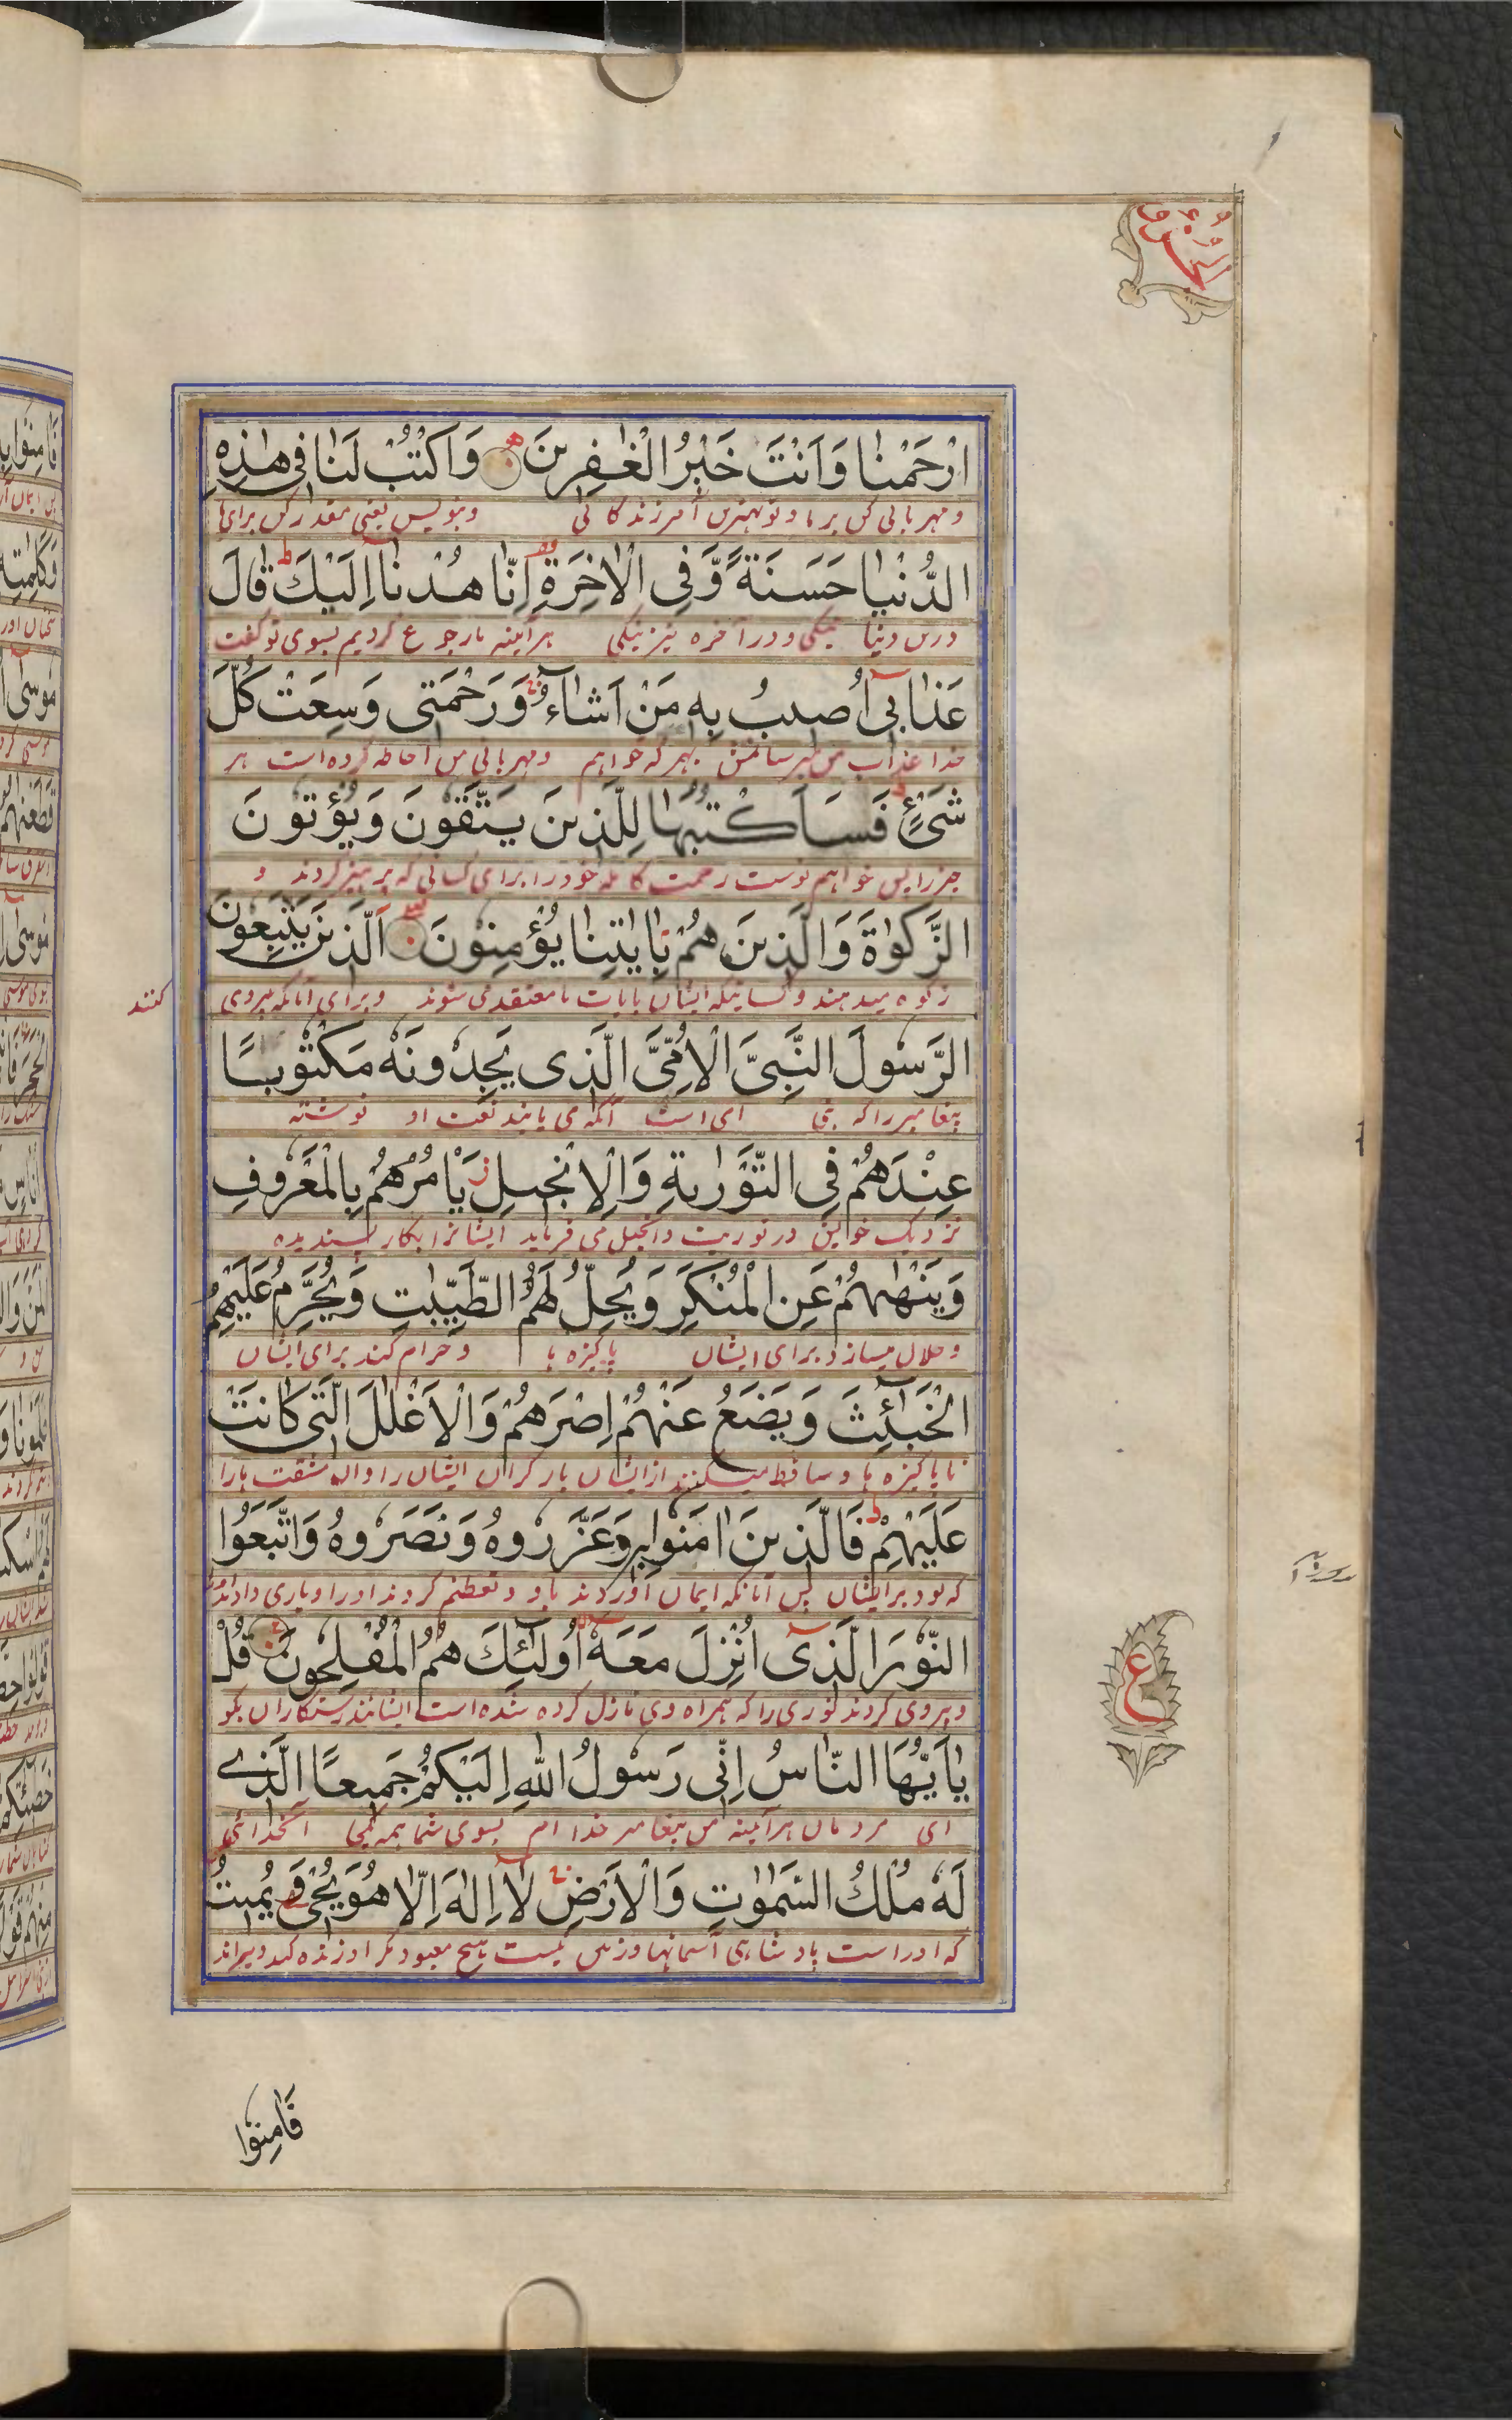 ارْحَمْنا وَاَنْتَ خَيْرُ الْغٰفِرِينَ وَاكْتُبْ لَنا فِى هٰذِهِ
و مهربانی کن بر ما و تو بهترین آمرزندگانی و بنویس یعنی مقدر کن برای ما
الدُّنْيا حَسَنَةً وَّفِى الْاٰخِرَةِ اِنّا هُدْنا اِلَيْكَ قالَ
درین دنیا نیکی و در آخره نیز نیکی هرآینه ما رجوع کردیم بسوی تو گفت
عَذابِى اُصِيبُ بِهِ مَنْ اَشاءُ وَرَحْمَتِى وَسِعَتْ كُلَّ
خدا عذاب من میرسانمش بهر که خواهم و مهربانی من احاطه کرده است هر
شَىْءٍ فَسَاَكْتُبُها لِلَّذِينَ يَتَّقُونَ وَيُؤْتُونَ
چیز را پس خواهم نوشت رحمت کامله خود را برای کسانی که پرهیز کردند و
الزَّكٰوةَ وَالَّذِينَ هُمْ بِاٰيٰتِنا يُؤْمِنُونَ اَلَّذِينَ يَتَّبِعُونَ
زکوه میدهند و کسانیکه ایشان بایات ما معتقد می شوند و برای آنانکه پیروی
کنند
الرَّسُولَ النَّبِىَّ الْاُمِّىَّ الَّذِى يَجِدُونَهُ مَكْتُوبًا
پیغامبر را که نبی امی است آنکه می یابند نعت او نوشته
عِنْدَهُمْ فِى التَّوْرٰىةِ وَالْاِنْجِيلِ يَاْمُرُهُمْ بِالْمَعْرُوفِ
نزدیک خویش در توریت و انجیل می فرماید ایشانرا بکار پسندیده
وَيَنْهٰىهُمْ عَنِ الْمُنْكَرِ وَيُحِلُّ لَهُمُ الطَّيِّبٰتِ وَيُحَرِّمُ عَلَيْهِمُ
و حلال میسازد برای ایشان پاکیزه ها و حرام کند برای ایشان
الْخَبٰئِثَ وَيَضَعُ عَنْهُمْ اِصْرَهُمْ وَالْاَغْلٰلَ الَّتِى كانَتْ
ناپاکیزه ها و ساقط میکند از ایشان بار گران ایشان را و آن مشقت ها را
عَلَيْهِمْ فَالَّذِينَ اٰمَنُوا بِهِ وَعَزَّرُوهُ وَنَصَرُوهُ وَاتَّبَعُوا
که بود بر ایشان پس آنانکه ایمان آوردند باو و تعظیم کردند او را و یاری دادند
النُّورَ الَّذِى اُنْزِلَ مَعَهُ اُولٰئِكَ هُمُ الْمُفْلِحُونَ قُلْ
و پیروی کردند نوری را که همراه وی نازل کرده شده است ایشانند رستگاران بگو
يٰاَيُّهَا النّاسُ اِنِّى رَسُولُ اللّٰهِ اِلَيْكُمْ جَمِيعًا الَّذِى
ای مردمان هرآینه من پیغامبر خدا ام بسوی شما همه یکجا آنخدائی
لَهُ مُلْكُ السَّمٰوٰتِ وَالْاَرْضِ لا اِلٰهَ اِلّا هُوَ يُحْىِ وَيُمِيتُ
که او راست پادشاهی آسمانها و زمین نیست هیچ معبود مگر او زنده کند و میراند
ع
فَاٰمِنُوا